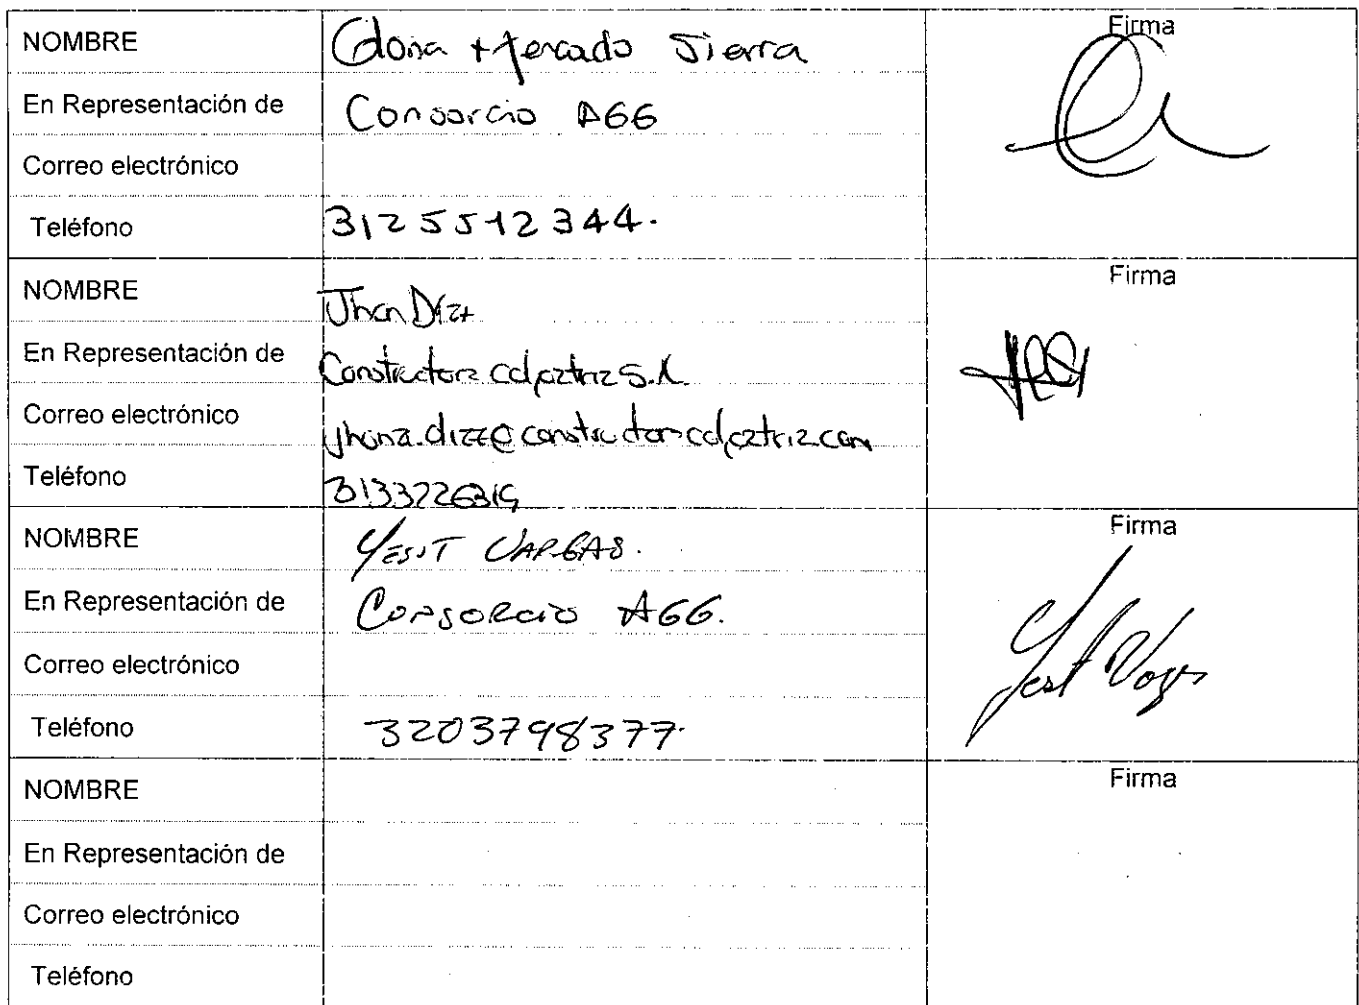 NOMBRE
Gloria Mercado Sierra
Firma
En Representación de
Consorcio AGG
Correo electrónico
Teléfono
3125512344.
NOMBRE
Jhon Díaz
Firma
En Representación de
Constructora colpatria S.A.
Correo electrónico
Teléfono
NOMBRE
YESIT VARGAS.
Firma
En Representación de
CONSORCIO AGG.
Yesit Vargas
Correo electrónico
Teléfono
3203798377.
NOMBRE
Firma
En Representación de
Correo electrónico
Teléfono